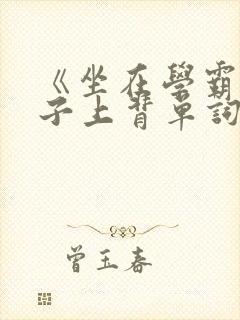 《坐在學霸
子上背單詞
曾玉春